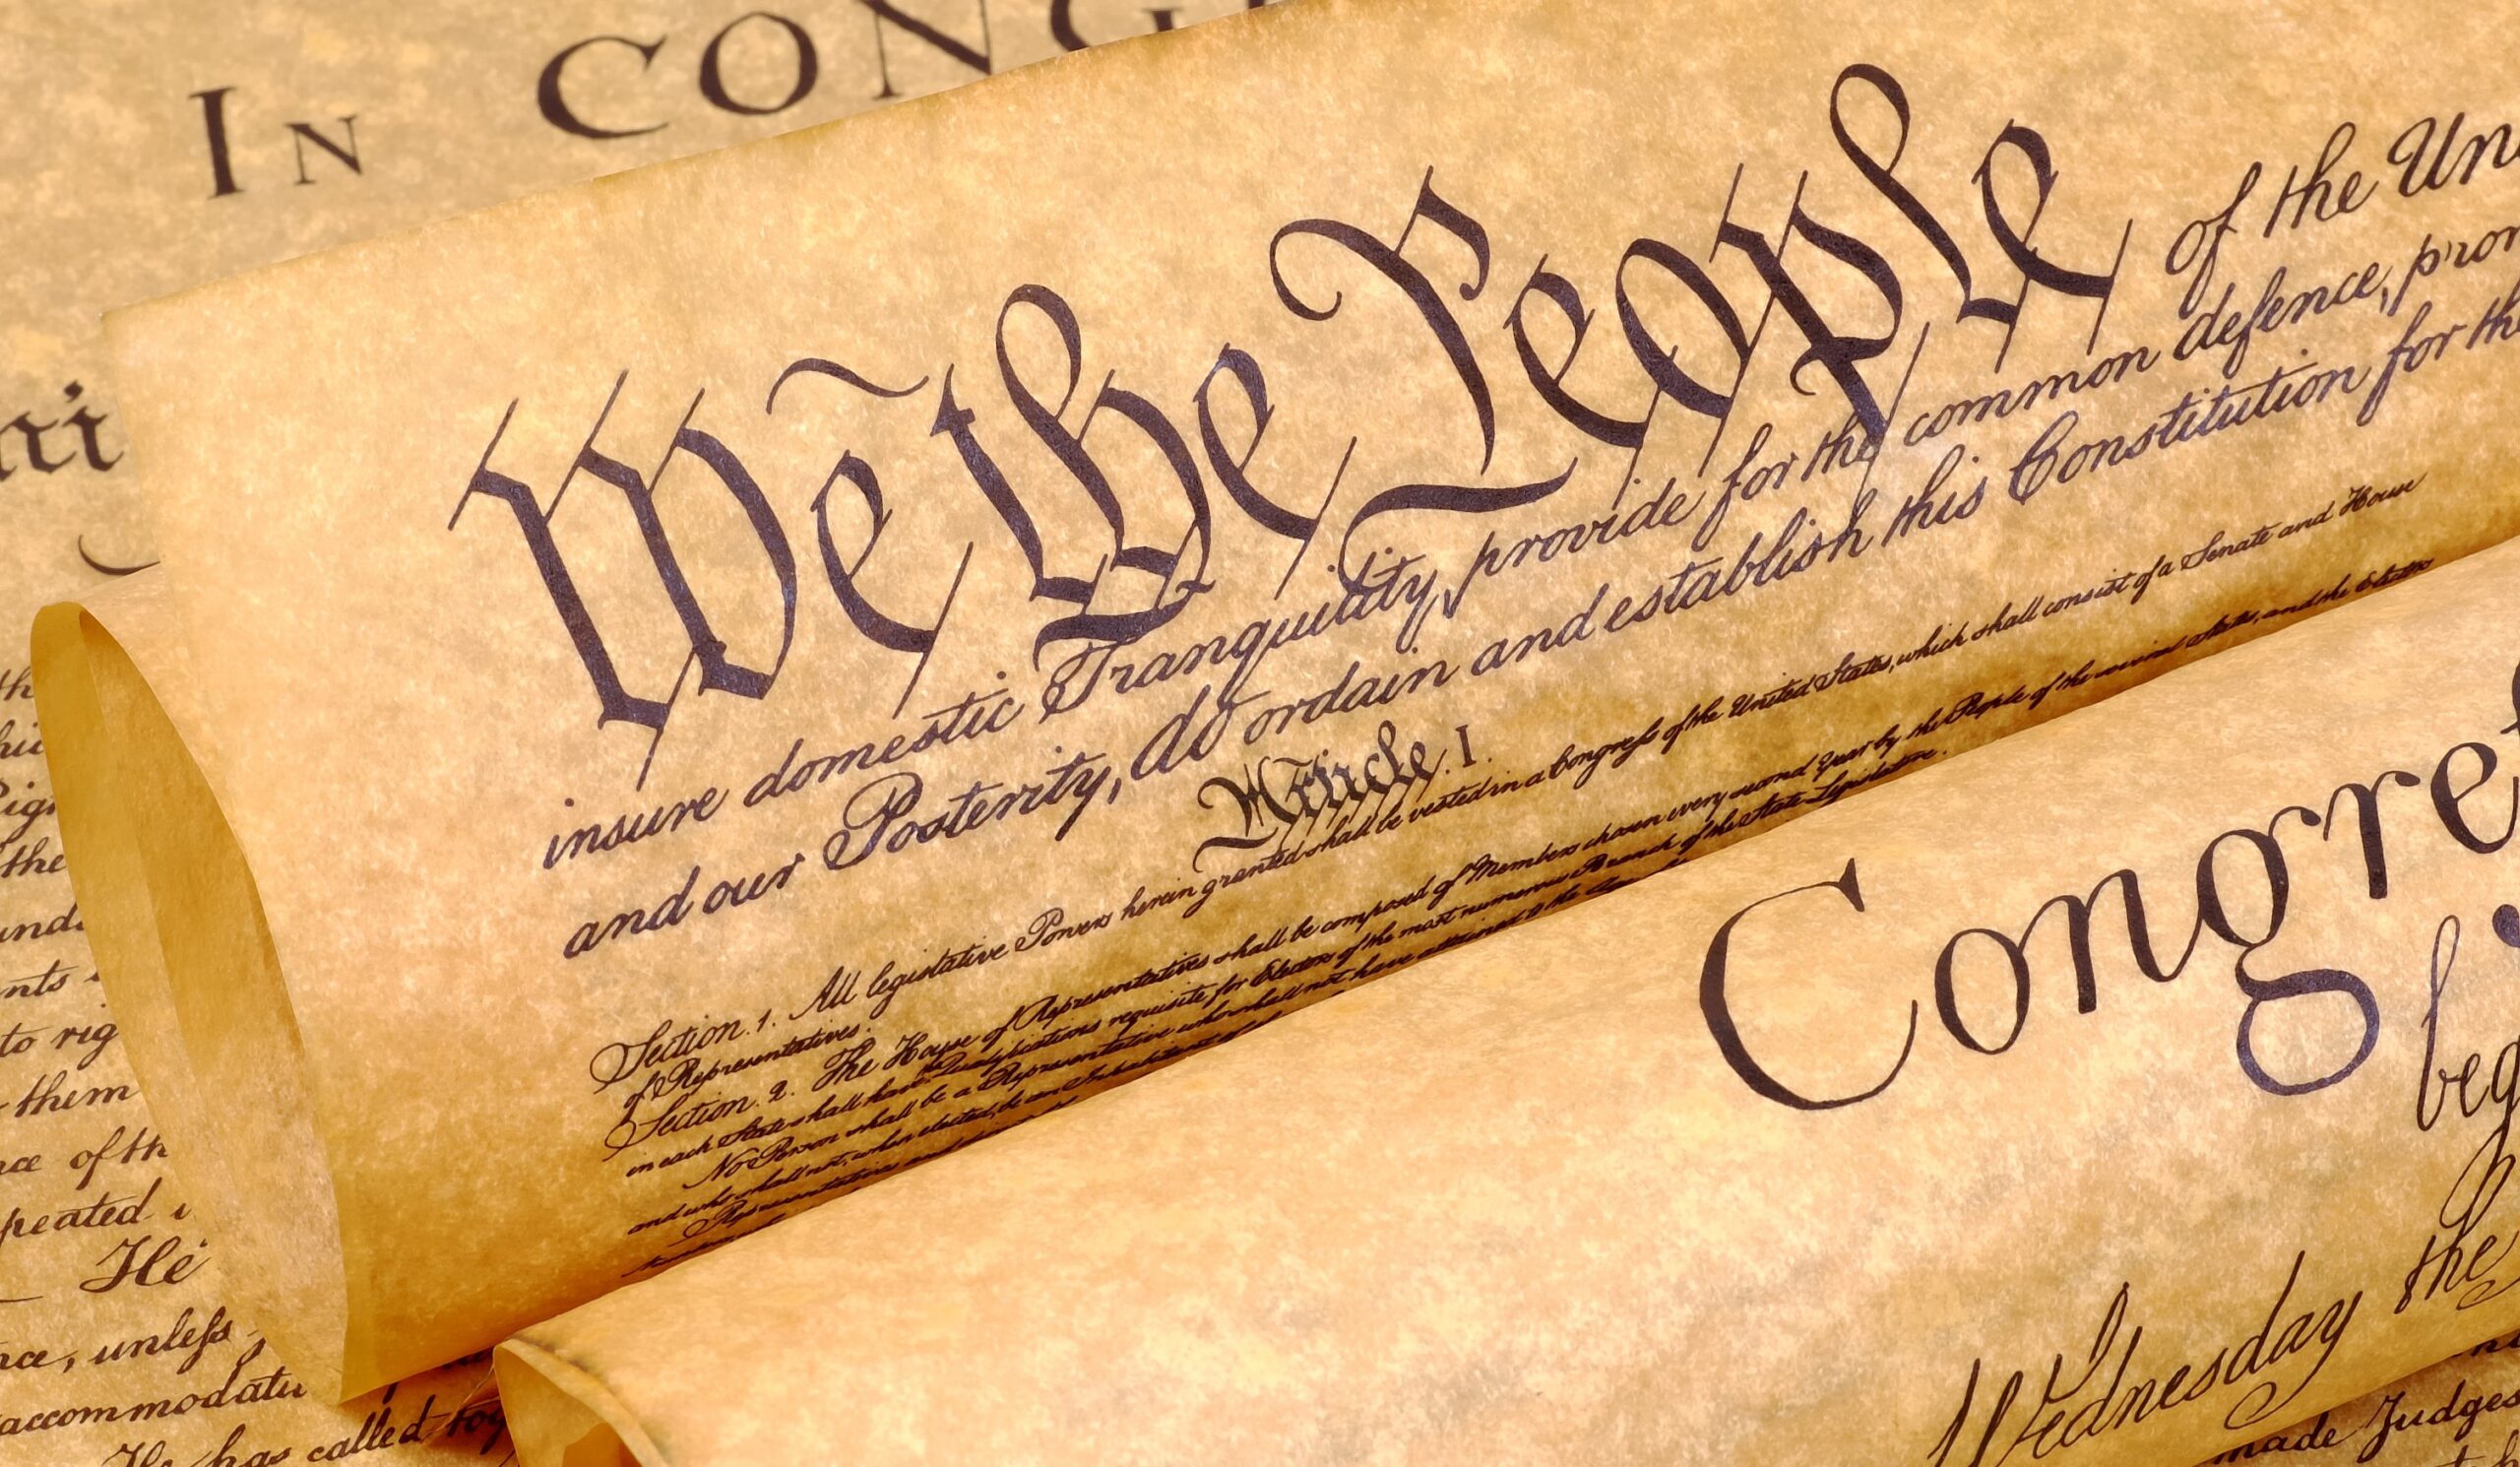 In CONG
We the People of the Un
insure domestic Tranquility, provide for the common defence, prom
and our Posterity, do ordain and establish this Constitution for th
Article. I.
Section. 1. All legislative Powers herein granted shall be vested in a Congress of the United States, which shall consist of a Senate and House
of Representatives.
Section. 2. The House of Representatives shall be composed of Members chosen every second Year by the People of the several States, and the Electors
in each State shall have the Qualifications requisite for Electors of the most numerous Branch of the State Legislature.
No Person shall be a Representative who shall not have attained to the
and who shall not, when elected, be an Inhabitant of
Representatives and
th
the
to rig
them
ce of th
peated
He
ce, unless
accommodatio
He has called tog
Congres
beg
Wednesday the
made Judges